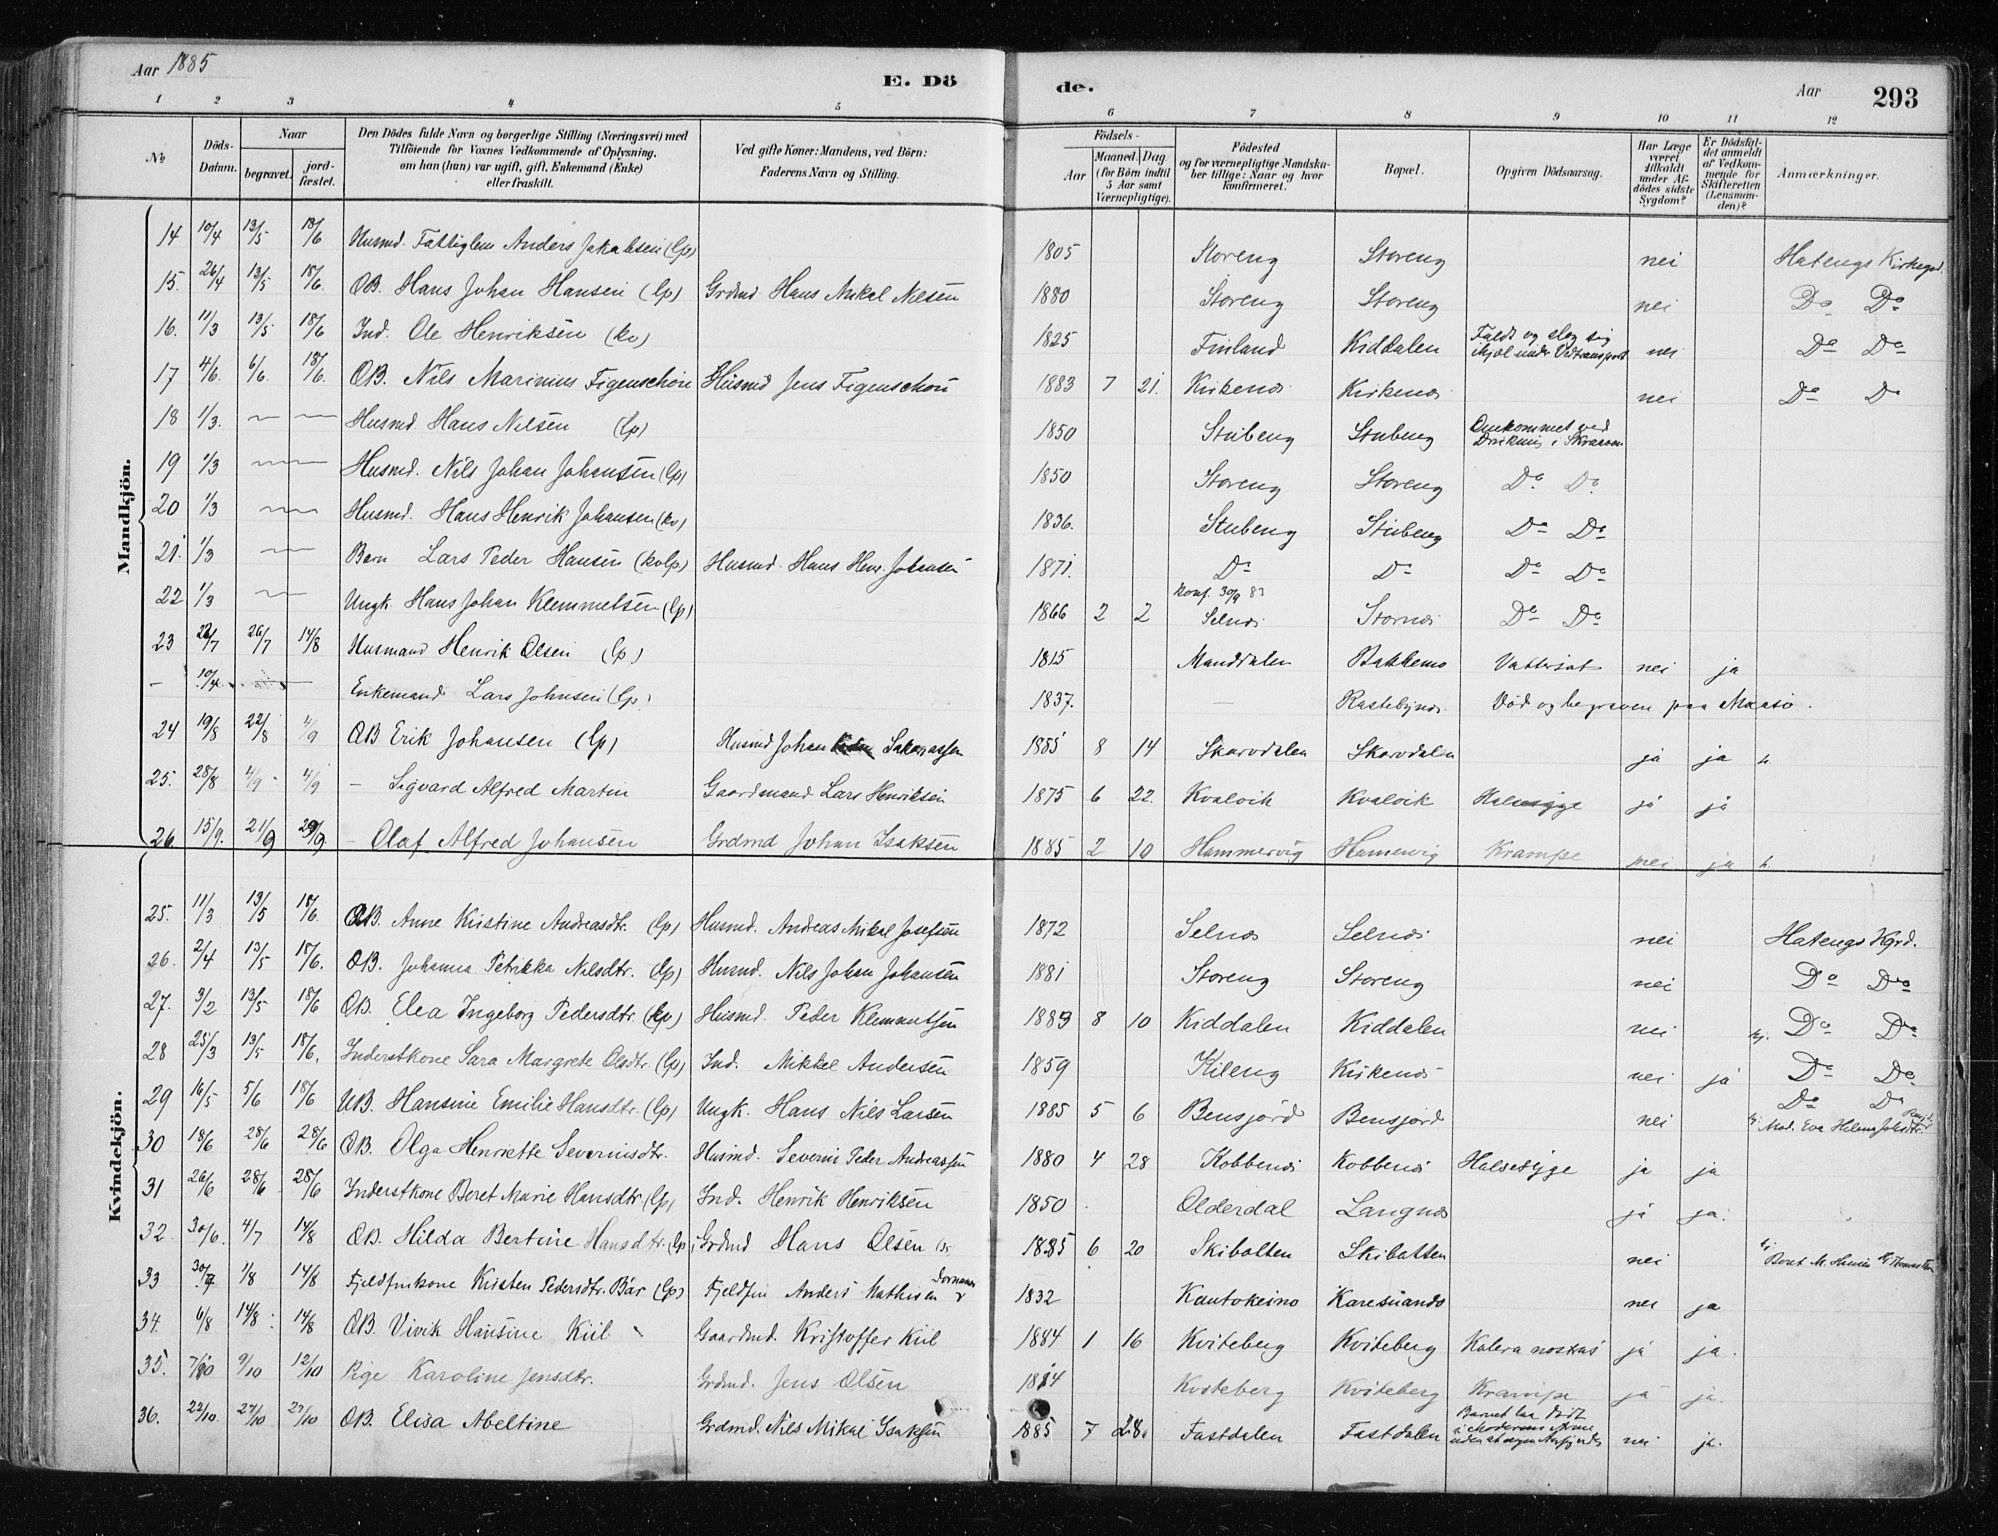 Aar 1885 E. Dö de. Aar 293
1 2 3 4 5 6 7 8 9 10 11 12
No. Döds-Datum. Naar begravet. jord-fæstet. Den Dödes fulde Navn og borgerlige Stilling (Næringsvei) med Tilföiende for Voxnes Vedkommende af Oplysning, om han (hun) var ugift, gift, Enkemand (Enke) eller fraskilt. Ved gifte Koner: Mandens, ved Börn: Faderens Navn og Stilling. Födsels- Aar Maaned. Dag. (for Börn indtil 5 Aar samt Værnepligtige). Födested og for værnepligtige Mandskaber tillige: Naar og hvor konfirmeret. Bopæl. Opgiven Dödsaarsag. Har Læge været tilkaldt under Afdödes sidste Sygdom? Er Dödsfaldet anmeldt af Vedkommende for Skifteretten (Lensmanden)? Anmærkninger.
Mandkjön.
14 10/4 13/5 18/6 Husmd. Fattiglem Anders Jakobsen (lp) 1805 Storeng Storeng nei Hatengs Kirkegd.
15. 26/4 13/5 18/6. ÆB. Hans Johan Hansen (lp) Grdmd Hans Mikal Nilsen 1880 Storeng Storeng nei Do Do
16. 11/3 13/5 18/6 Ind. Ole Henriksen (kv) 1825 Finland Kiddalen Faldt og slog sig ihjel under Vedtransport nei Do Do
17 4/6. 6/6. 18/6. ÆB. Nils Marinius Figenschou Husmd Jens Figenschou 1883 7 21. Kirkenes Kirkenes nei Do Do
18 1/3. — — Husmd. Hans Nilsen (lp) 1850 Stubeng Stubeng Omkommet ved
19 1/3 — — Husmd. Nils Johan Johansen (lp) 1850 Storeng Storeng Do Do
20 1/3 — Husmd. Hans Henrik Johansen (kv) 1836. Stubeng Stubeng Do Do
21. 1/3 — Barn Lars Peder Hansen (kvlp) Husmd. Hans Hen. Johansen 1871. Do Do Do Do
22 1/3 — Ungk. Hans Johan Klemmetsen (lp) 1866 2 2 konf. 30/9 83 Selnes Stornes Do Do
23 22/7 26/7 14/8 Husmand Henrik Olsen (lp) 1815 Manddalen Bakkemo Vattersot nei ja
— 10/4 — Enkemand Lars Johnsen (lp) 1837. — Rastebynes Död og begraven paa Maasö.
24 19/8 22/8 4/9 ÆB Erik Johansen (lp) Husmd Johan Sakariassen 1885 8 14 Skarvdalen Skarvdalen ja ja
25. 28/8 4/9 4/9 — Sigvard Alfred Martin Gaardmand Lars Henriksen 1875 6 22. Kvalvik Kvalvik Halssyge ja ja
26 15/9. 21/9 29/9. — Olaf Alfred Johansen Grdmd Johan Isaksen 1885 2 10 Hammervig Hamervig Krampe nei ja
Kvindekjön.
25. 11/3 13/5 18/6. ÆB. Anne Kristine Andreasdtr. (lp) Husmd. Andreas Mikal Josefsen 1872 Selnes Selnes nei Hatengs Kgrd.
26. 2/4 13/5 18/6. ÆB. Johanna Petrikka Nilsdtr. (lp) Husmd. Nils Johan Johansen 1881 Storeng Storeng nei Do Do
27. 3/2 13/5 18/6 ÆB. Elea Ingeborg Pedersdtr. (kv) Husmd. Peder Klemmetsen 1883 8 10 Kiddalen Kiddalen nei Do Do
28 25/3 13/5 18/6. Inderstkone Sara Margrete Olsdtr. (lp) Ind. Mikkel Andersen 1859 Kileng Kirkenes nei ja Do Do
29 16/5 5/6 18/6 UB. Hansine Emilie Hansdtr. (lp) Ungk. Hans Nils Larsen 1885 5 6 Bensjord Bensjord nei Do Do Mod. Eva Helena
30 18/6 28/6 28/6 ÆB. Olga Henriette Severinsdtr. Husmd. Severin Peder Andreassen 1880 4 28 Kobbenes Kobbenes Halssyge ja ja
31 26/6 28/6 28/6 Inderstkone Beret Marie Hansdtr. (lp) Ind. Henrik Henriksen 1850 Olderdal Langnes ja ja.
32. 30/6. 4/7 14/8 ÆB. Hilda Bertine Hansdtr. (lp) Grdmd Hans Olsen 1885 6 20 Skibotten Skibotten nei Beret M.
33 30/7 1/8 14/8 Fjeldfinkone Kirsten Pedersdtr. Bär (lp) Fjeldfin Anders Mathisen 1832 Kautokeino Karesuando nei ja
34. 6/8 14/8 14/8 ÆB. Vivik Hansine Kiil Gaardmd. Kristoffer Kiil 1884 1 16 Kviteberg Kviteberg Kolera nostras ja ja.
35. 7/10 9/10 12/10 Pige Karoline Jensdtr. Grdmd. Jens Olsen Kviteberg Kviteberg Krampe ja ja.
36. 22/10 27/10 27/10 ÆB. Elisa Abeltine Grdmd. Nils Mikal Isaksen 1885 7 28. Fastdalen Fastdalen Barnet laa dödt i Moderens Arme nei ja.